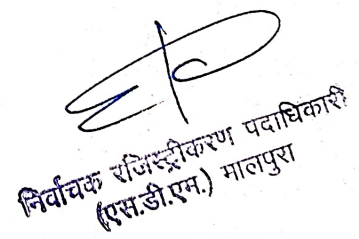 निर्वाचक रजिस्ट्रीकरण पदाधिकारी
(एस.डी.एम.) मालपुरा